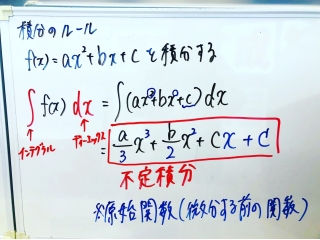 積分のルール
f(x)=ax²+bx+c を積分する
∫f(x)dx = ∫(ax²+bx¹+c)dx
インテグラル ディーエックス
= a/3 x³ + b/2 x² + cx + C
不定積分
※原始関数(微分する前の関数)